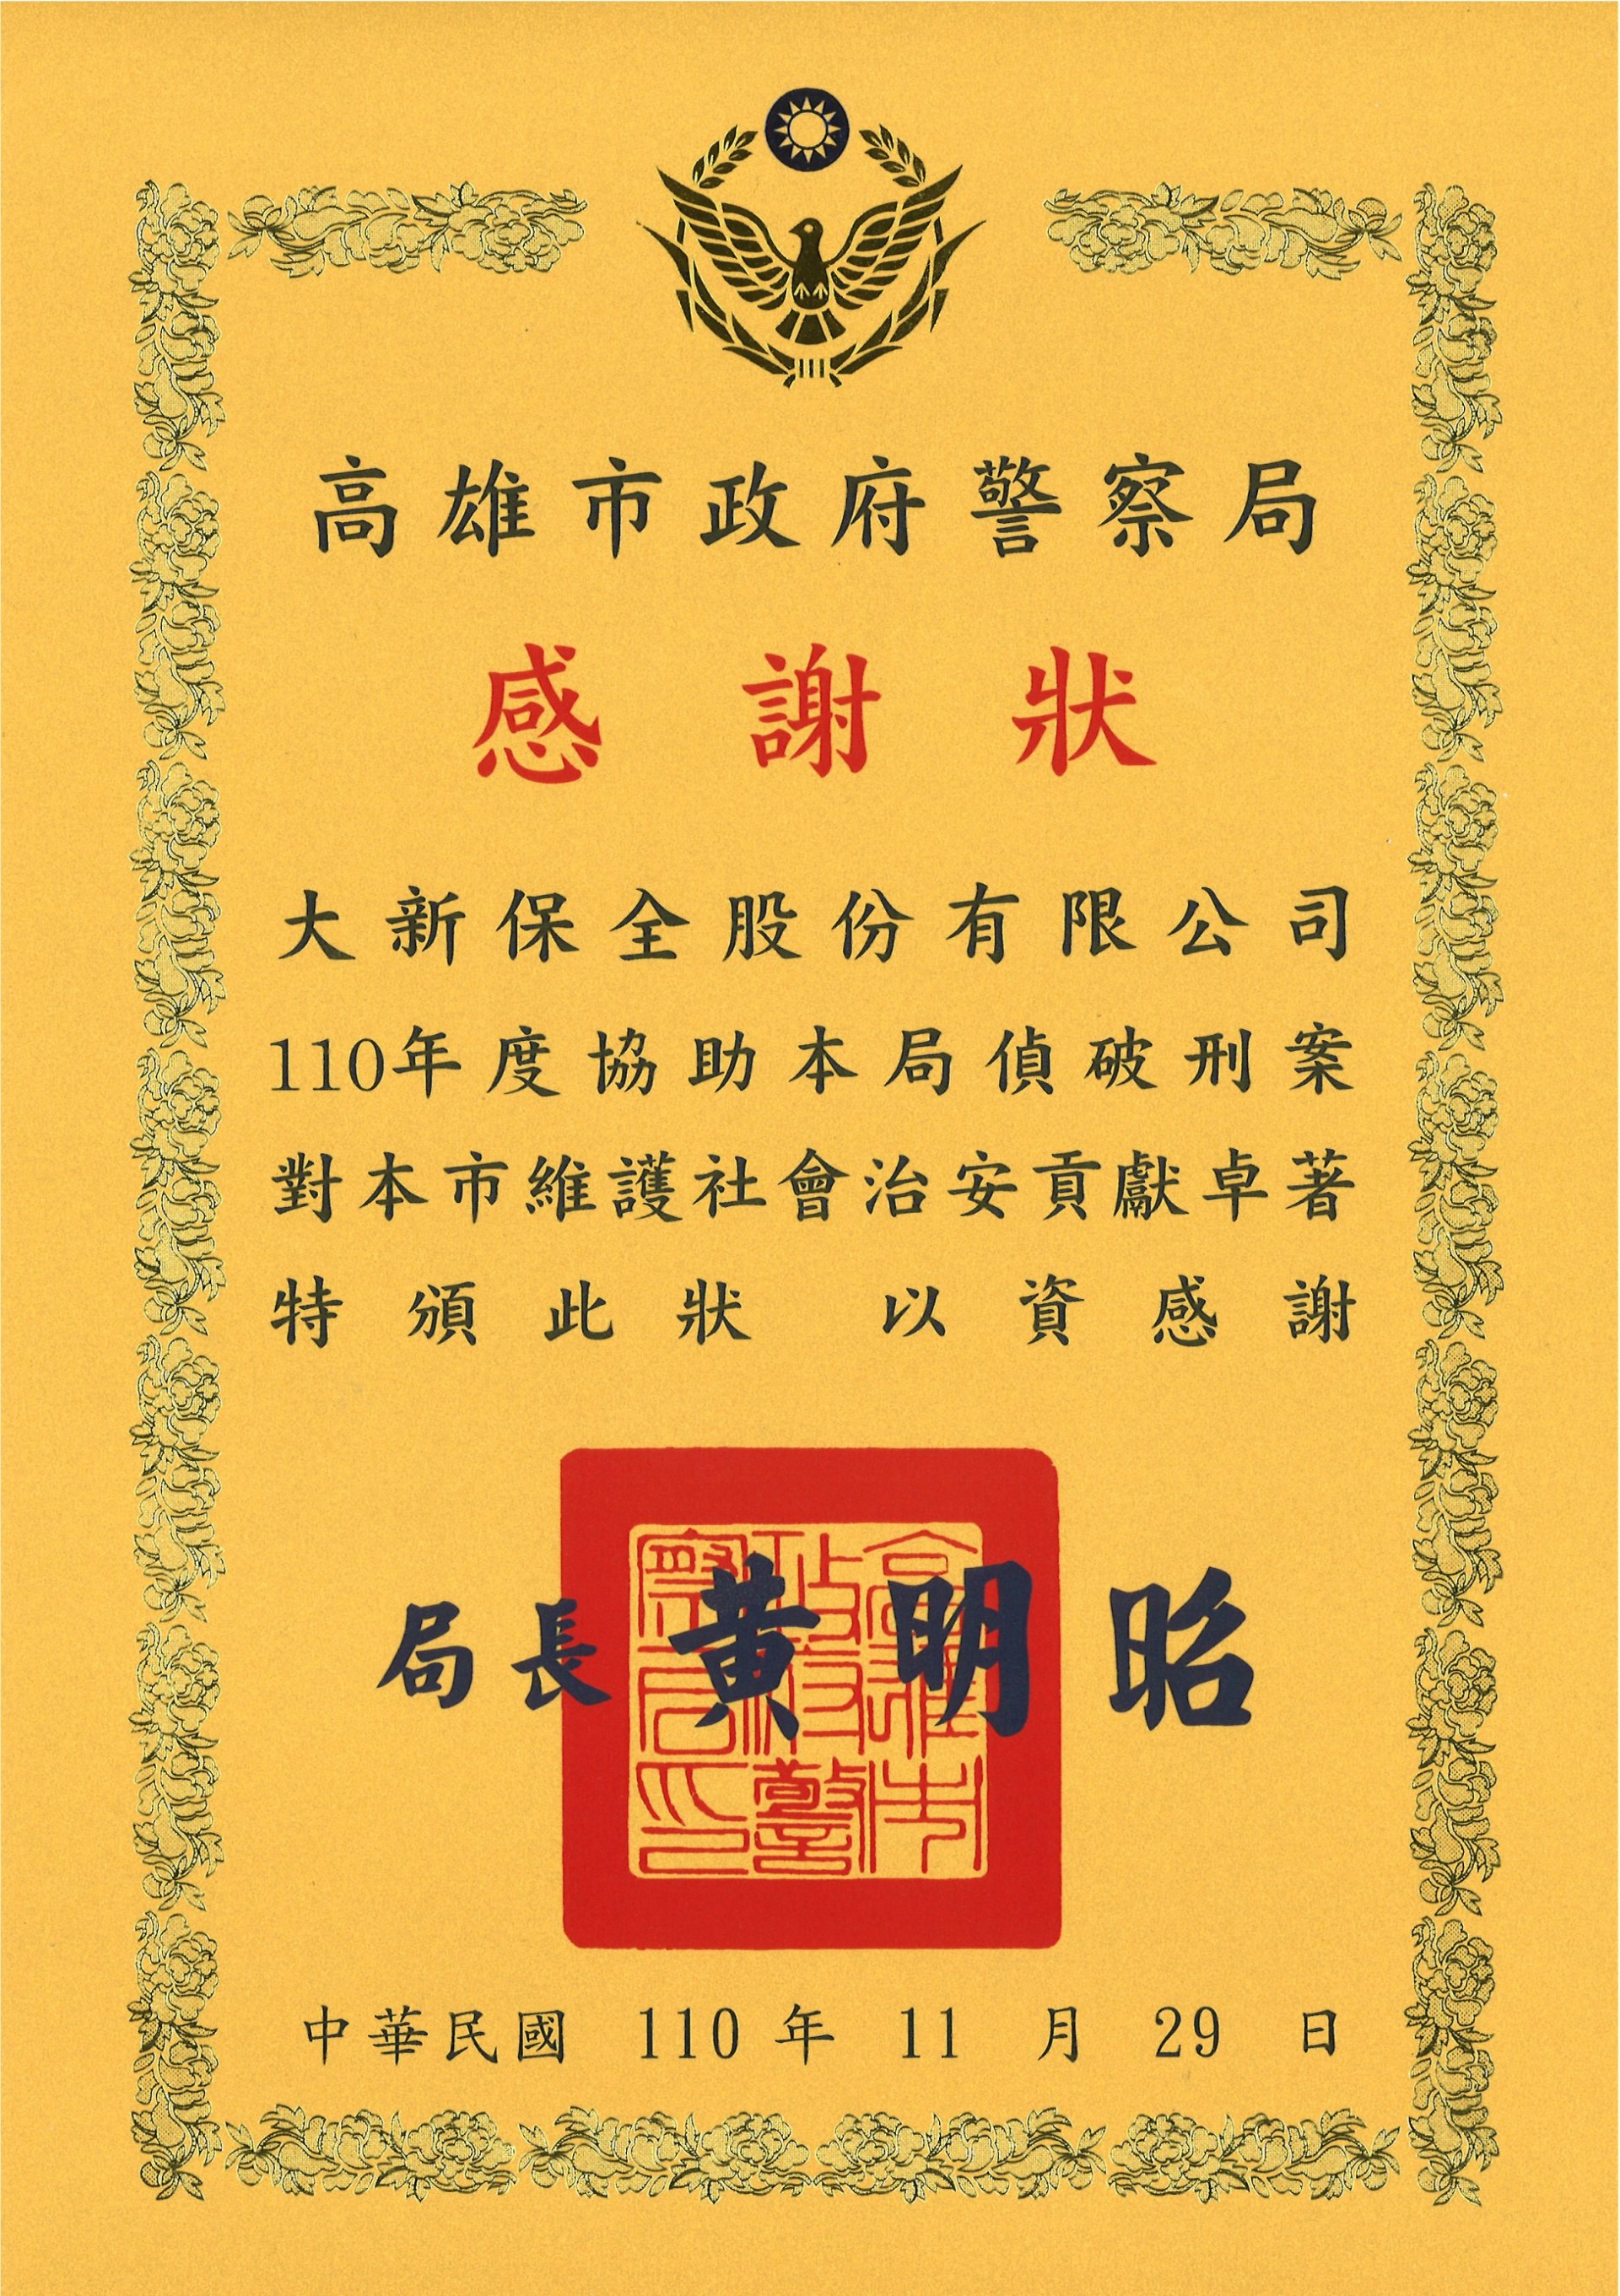 高雄市政府警察局
感謝狀
大新保全股份有限公司
110年度協助本局偵破刑案
對本市維護社會治安貢獻卓著
特頒此狀 以資感謝
局長 黃明昭
高雄市政府警察局印
中華民國 110 年 11 月 29 日